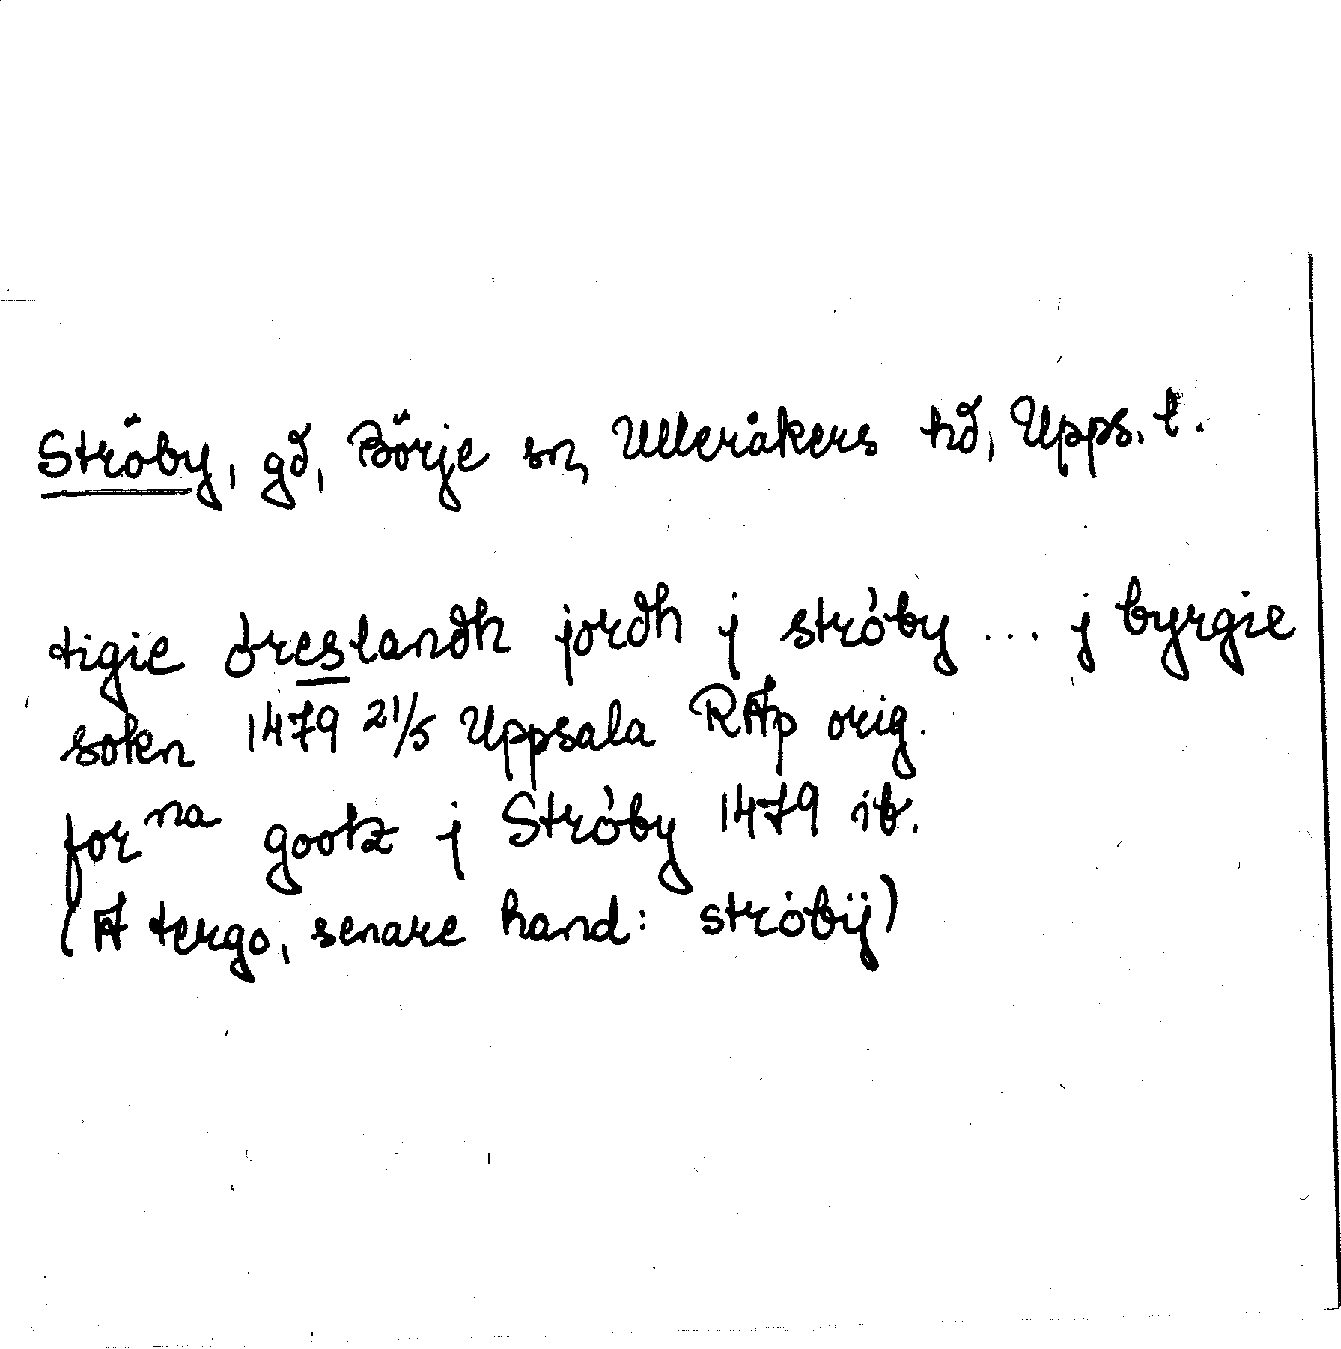 Ströby, gd, Börje sn, Ulleråkers hd, Upps. l.
tigie öreslandh jordh j ströby ... j byrgie
sokn 1479 21/5 Uppsala RAp orig.
for na gootz j Ströby 1479 ib.
(A tergo, senare hand: ströbÿ)